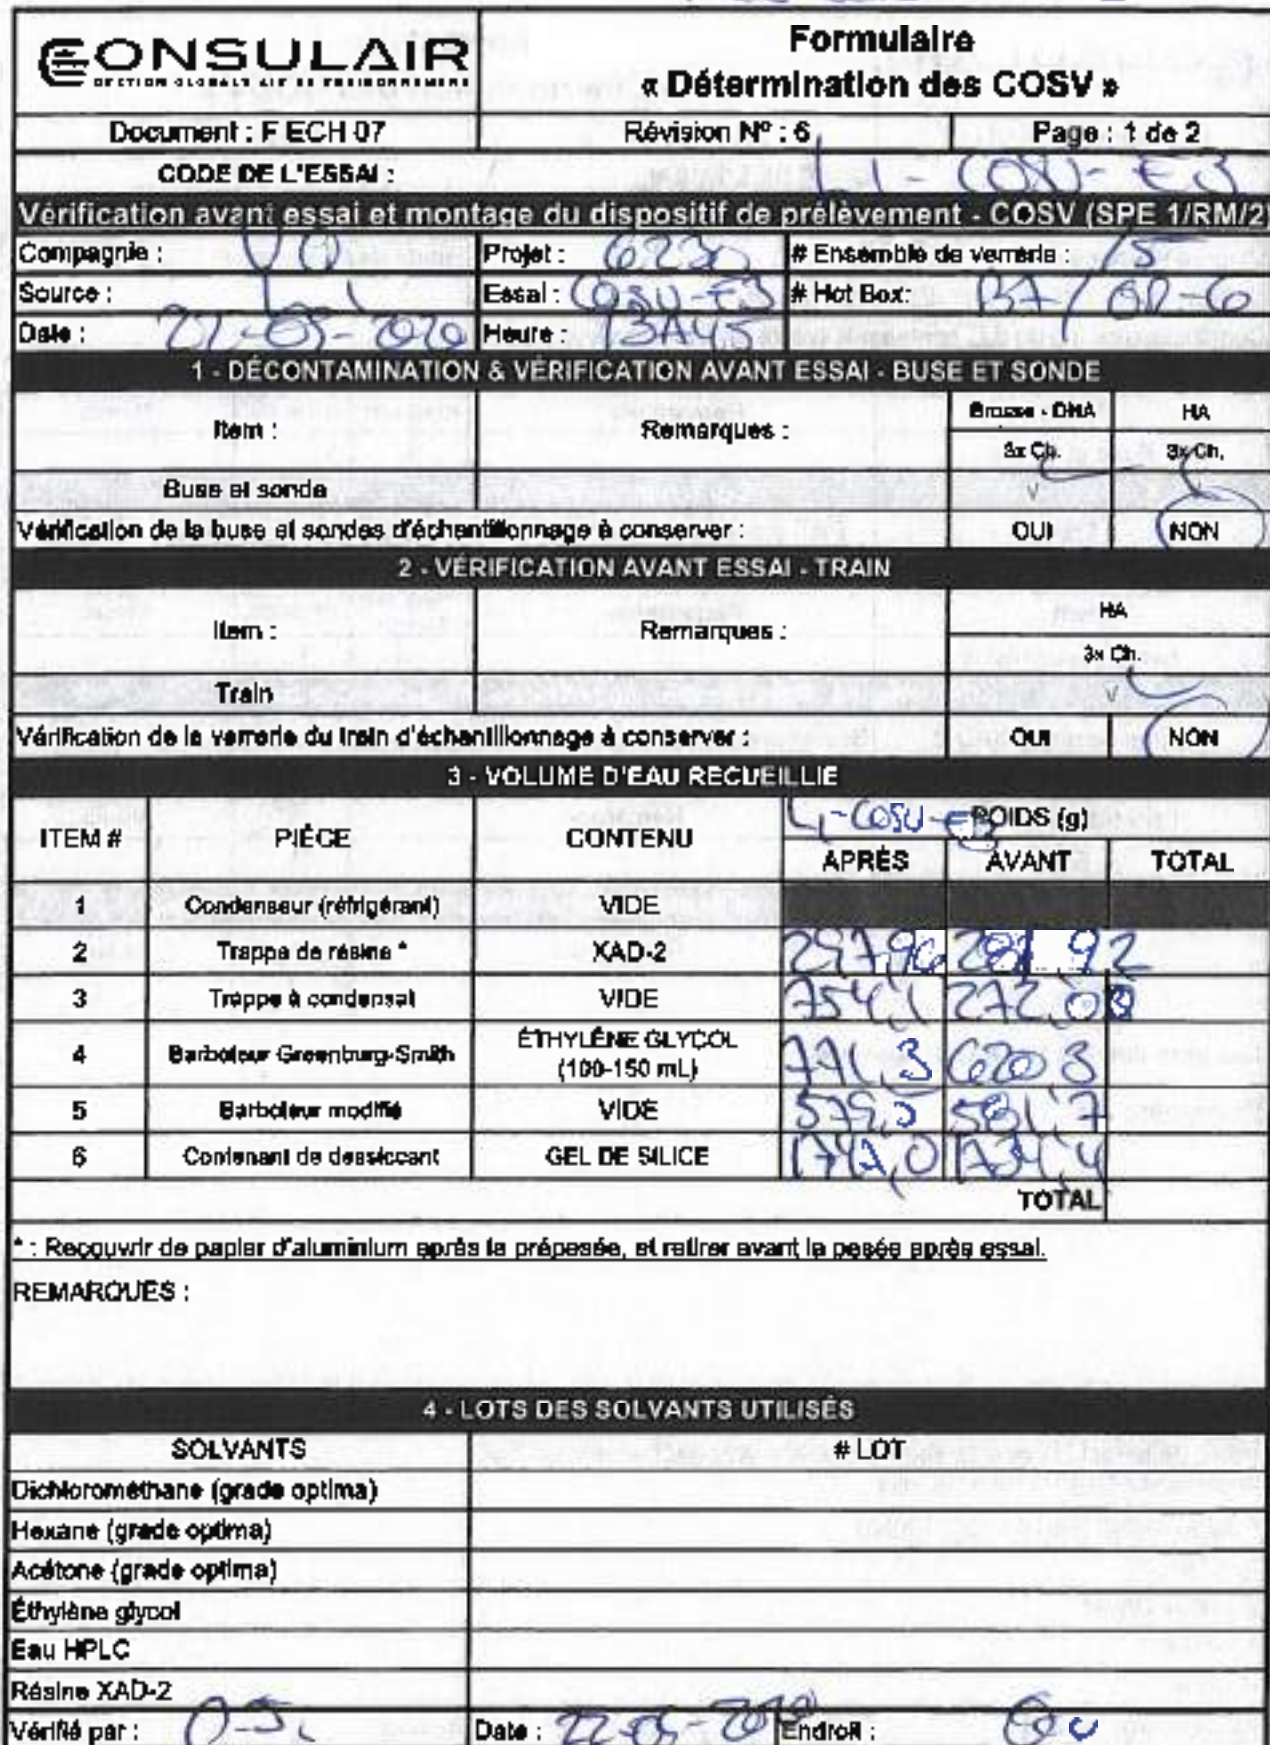 CONSULAIR
GESTION GLOBALE AIR ET ENVIRONNEMENT
Formulaire
« Détermination des COSV »
Document : F ECH 07
Révision Nº : 6
Page : 1 de 2
CODE DE L'ESSAI : L1 - COSV - E3
Vérification avant essai et montage du dispositif de prélèvement - COSV (SPE 1/RM/2)
Compagnie :
Projet :
# Ensemble de verrerie : 15
Source : L1
Essai : COSV-E3
# Hot Box:
Date :
Heure : 13h45
1 - DÉCONTAMINATION & VÉRIFICATION AVANT ESSAI - BUSE ET SONDE
Item :
Remarques :
Brosse - DHA
HA
3x Ch.
3x Ch.
Buse et sonde
V
Vérification de la buse et sondes d'échantillonnage à conserver :
OUI
NON
2 - VÉRIFICATION AVANT ESSAI - TRAIN
Item :
Remarques :
HA
3x Ch.
Train
V
Vérification de la verrerie du train d'échantillonnage à conserver :
OUI
NON
3 - VOLUME D'EAU RECUEILLIE
ITEM #
PIÈCE
CONTENU
L1-COSV-E3
POIDS (g)
APRÈS
AVANT
TOTAL
1
Condenseur (réfrigérant)
VIDE
2
Trappe de résine *
XAD-2
3
Trappe à condensat
VIDE
754,1
272,0
4
Barboteur Greenburg-Smith
ÉTHYLÈNE GLYCOL
(100-150 mL)
5
Barboteur modifié
VIDE
581,7
6
Contenant de dessiccant
GEL DE SILICE
TOTAL
* : Recouvrir de papier d'aluminium après la prépesée, et retirer avant la pesée après essai.
REMARQUES :
4 - LOTS DES SOLVANTS UTILISÉS
SOLVANTS
# LOT
Dichlorométhane (grade optima)
Hexane (grade optima)
Acétone (grade optima)
Éthylène glycol
Eau HPLC
Résine XAD-2
Vérifié par :
Date :
Endroit :